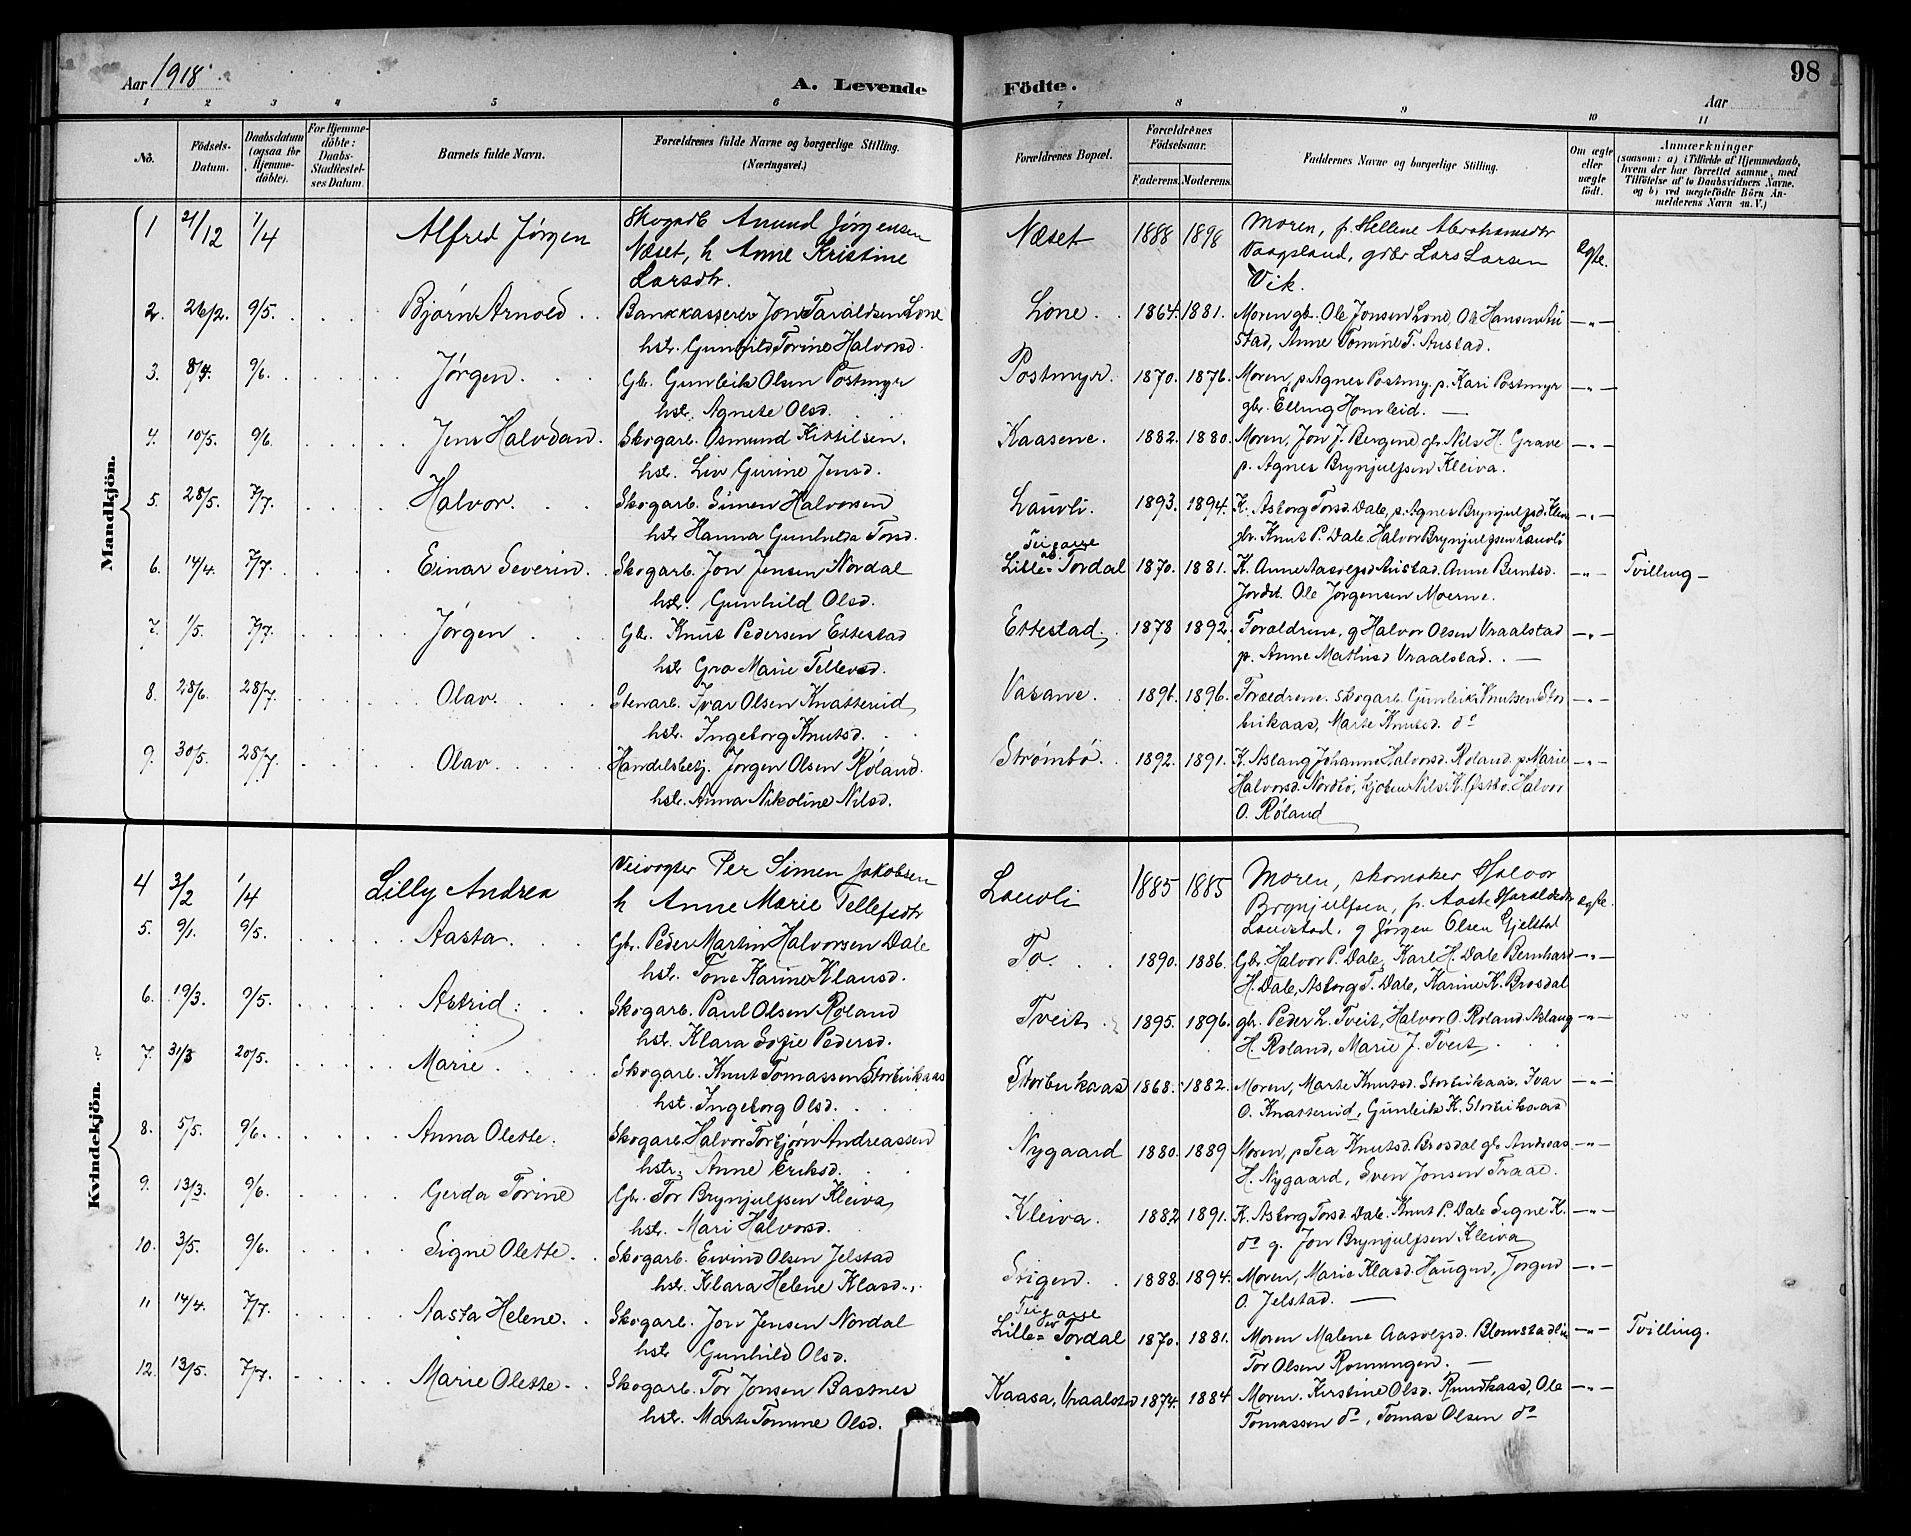 Aar 1918. A. Levende Födte. 98
Aar
1 2 3 4 5 6 7 8 9 10 11
No. Födsels-Datum. Daabsdatum (ogsaa for Hjemme-döbte). For Hjemme-döbte: Daabs-Stadfæstel-ses Datum. Barnets fulde Navn. Forældrenes fulde Navne og borgerlige Stilling. (Næringsvei.) Forældrenes Bopæl. Forældrenes Födselsaar. Faderens. Moderens. Faddernes Navne og borgerlige Stilling. Om ægte eller uægte födt. Anmærkninger (saasom: a) i Tilfælde af Hjemmedaab, hvem der har forrettet samme, med Tilföielse af to Daabsvidners Navne, og b) ved uægtefödte Börn An-melderens Navn m. V.)
Mandkjön.
1 21/12 1/4 Alfred Jørgen Skogarb Amund Jørgensen Næset 1888 1898 Moren, p. Hellene Abrahamsdtr ægte.
Næset, h Anne Kristine Vaagsland, gdbr Lars Larsen
Larsdtr. Vik.
2. 26/2. 9/5. Bjørn Arnold. Bankkasserer Jon Taraldsen Lone Lone. 1864. 1881. Moren gb. Ole Jonsen Lone, Ole Hansen Au- -"-
hst. Gunhild Torine Halvorsd. stad, Anne Tomine T. Austad.
3. 8/4. 9/6. Jørgen. Gb. Gunleik Olsen Postmyr Postmyr. 1870. 1876. Moren, p. Agnes Postmy. p. Kari Postmyr -"-
hst. Agnete Olsd. gbr. Elling Homleid.
4. 10/5. 9/6. Jens Halvdan. Skogarb. Osmund Kittilsen. Kaasene. 1882. 1880. Moren, Jon J. Bergene gb. Nils H. Grave -"-
hst. Liv Gurine Jensd. p. Agnes Brynjulfsen Kleiva.
5. 28/5. 7/7. Halvor. Skogarb. Simen Halvorsen Lauvli. 1893. 1894. K. Asborg Torsd. Dale, p. Agnes Brynjulfsd. Kleiva -"-
hst. Hanna Gunhilda Torsd. gb. Knut P. Dale. Halvor Brynjulfsen Lauvli
6. 14/4. 7/7. Einar Severin. Skogarb. Jon Jensen Nordal Lille-Tordal 1870. 1881. K. Anne Aasulvsd Austad. Anne Berntsd. -"- Tvilling-
hst. Gunhild Olsd. Jordet. Ole Jørgensen Moerne.
7. 1/5. 7/7. Jørgen Gb. Knut Pedersen Ettestad Ettestad. 1878 1892. Forældrene, g Halvor Olsen Vraalstad -"-
hst Gro Marie Tellevsd. p. Anne Mathisd Vraalstad.
8. 28/6. 28/7. Olav. Stenarb. Ivar Olsen Knatterud Vasane. 1896. 1896. Forældrene. Skogarb. Gunleik Knutsen Stor- -"-
hst. Ingeborg Knutsd. bukaas, Marte Knutsd. do
9. 30/5. 28/7. Olav. Handelsbetj. Jørgen Olsen Röland. Strömbö. 1892. 1891. K. Aslaug Johanne Halvorsd. Roland p. Marie -"-
hst. Anna Nikoline Nilsd. Halvorsd. Nordbö, Kjöbm Nils K. Østbö. Halvor
O. Röland
Kvindekjön.
4 3/2 1/4 Lilly Andrea Veivogter Per Simen Jakobsen Lauvli 1885 1885 Moren, skomaker Halvor ægte.
h Anne Marie Tellefsdtr Brynjulfsen, p. Aaste Haraldsdtr
5. 9/1. 9/5. Aasta. Gbr. Peder Martin Halvorsen Dale Lauvstad. g Jørgen Olsen Gjelstad
hst. Tone Karine Klausd. To. 1890. 1886. Gb. Halvor P. Dale, Karl H. Dale Bernhard -"-
6. 19/3. 9/5. Astrid. Skogarb. Paul Olsen Roland H. Dale, Asborg T. Dale, Karine K. Brosdal
hst. Klara Sofie Pedersd. Tveit. 1895. 1896. gb. Peder L. Tveit, Halvor O. Roland Aslaug -"-
? 7. 31/3 20/5. Marie. Skogarb. Knut Tomassen Storbukaas H. Roland, Marie J. Tveit.
hst. Ingeborg Olsd. Storbukaas 1868. 1882. Moren, Marte Knutsd. Storbukaas, Ivar -"-
8. 5/5. 9/6. Anna Olette. Skogarb. Halvor Torbjørn Andreassen O. Knatterud, Gunleik K. Storbukaas
hst. Anne Eriksd. Nygaard 1880. 1889 Moren, p Tea Knutsd. Brosdal gb Andreas -"-
9. 13/3. 9/6. Gerda Torine Gb. Tor Brynjulfsen Kleiva H. Nygaard, Sven Jonsen Traae.
hst. Mari Halvorsd. Kleiva. 1882 1891. K. Asborg Torsd. Dale. Knut P. Dale Signe K. -"-
10. 3/5. 9/6. Signe Olette. Skogarb. Eivind Olsen Jelstad do g. Jon Brynjulfsen Kleiva
hst. Klara Helene Klasd. Stigen. 1888. 1894. Moren, Marie Klasd. Haugen, Jørgen -"-
11 14/4. 7/7. Aasta Helene. Skogarb. Jon Jensen Nordal O. Jelstad.
hst. Gunhild Olsd. Lille-Tordal 1870. 1881. Moren Malene Aasulvsd. -"- Tvilling.
12. 13/5. 7/7. Marie Olette. Skogarb. Tor Jonsen Bastnes Tor Olsen Ronningen.
hst. Marte Tomine Olsd. Kaasa, Vraalstad 1874. 1884 Moren. Kirstine Olsd. Rundkaas, Ole -"-
Tomassen do, Tomas Olsen do